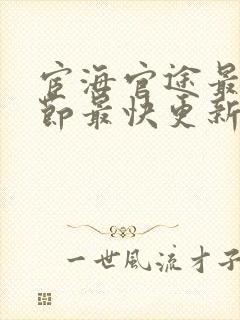 宦海官途最
节最快更新
一世风流才子